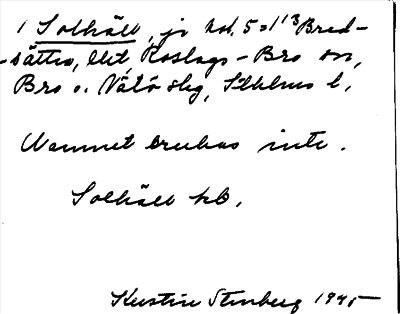 1 Solhäll, jr hd. 5=1¹³ Bred-
-sättra, likt Roslags-Bro sn,
Bro o. Vätö skg, Sthlms l.
Namnet brukas inte.
Solhäll hb.
Kerstin Stenberg 1945